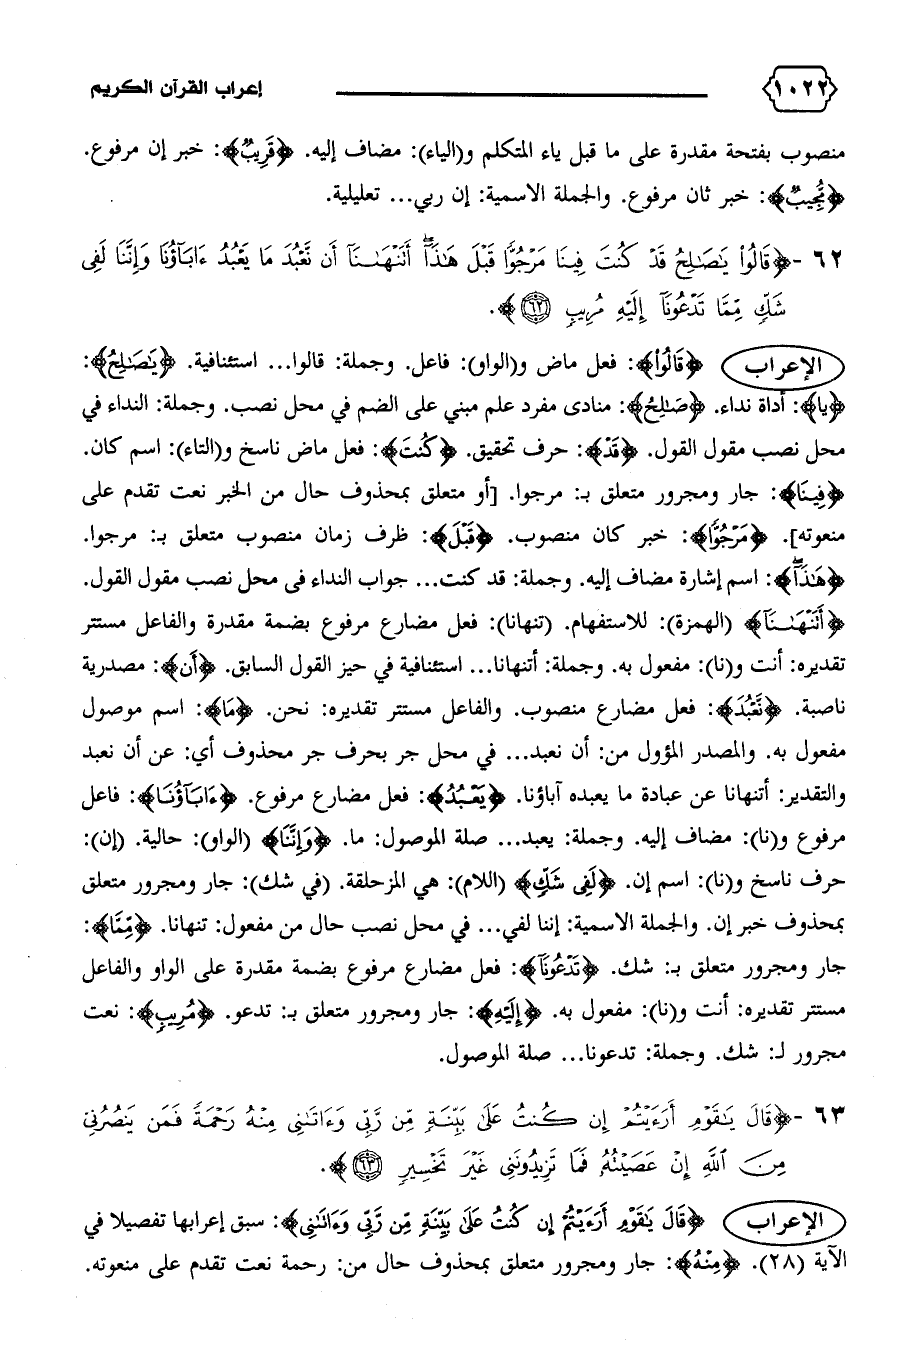 ١٠٢٢ إعراب القرآن الكريم
منصوب بفتحة مقدرة على ما قبل ياء المتكلم و(الياء): مضاف إليه. ﴿قَرِيبٌ﴾: خبر إن مرفوع.
﴿مُّجِيبٌ﴾: خبر ثان مرفوع. والجملة الاسمية: إن ربي... تعليلية.
٦٢ -﴿قَالُوا۟ يَـٰصَـٰلِحُ قَدْ كُنتَ فِينَا مَرْجُوًّا قَبْلَ هَـٰذَآ ۖ أَتَنْهَـٰنَآ أَن نَّعْبُدَ مَا يَعْبُدُ ءَابَآؤُنَا وَإِنَّنَا لَفِى
شَكٍّ مِّمَّا تَدْعُونَآ إِلَيْهِ مُرِيبٍ ٦٢﴾.
الإعراب ﴿قَالُوا۟﴾: فعل ماض و(الواو): فاعل. وجملة: قالوا... استئنافية. ﴿يَـٰصَـٰلِحُ﴾:
﴿يا﴾: أداة نداء. ﴿صَـٰلِحُ﴾: منادى مفرد علم مبني على الضم في محل نصب. وجملة: النداء في
محل نصب مقول القول. ﴿قَدْ﴾: حرف تحقيق. ﴿كُنتَ﴾: فعل ماض ناسخ و(التاء): اسم كان.
﴿فِينَا﴾: جار ومجرور متعلق بـ: مرجوا. [أو متعلق بمحذوف حال من الخبر نعت تقدم على
منعوته]. ﴿مَرْجُوًّا﴾: خبر كان منصوب. ﴿قَبْلَ﴾: ظرف زمان منصوب متعلق بـ: مرجوا.
﴿هَـٰذَآ ۖ﴾: اسم إشارة مضاف إليه. وجملة: قد كنت... جواب النداء فى محل نصب مقول القول.
﴿أَتَنْهَـٰنَآ﴾ (الهمزة): للاستفهام. (تنهانا): فعل مضارع مرفوع بضمة مقدرة والفاعل مستتر
تقديره: أنت و(نا): مفعول به. وجملة: أتنهانا... استئنافية في حيز القول السابق. ﴿أَن﴾: مصدرية
ناصبة. ﴿نَّعْبُدَ﴾: فعل مضارع منصوب. والفاعل مستتر تقديره: نحن. ﴿مَا﴾: اسم موصول
مفعول به. والمصدر المؤول من: أن نعبد... في محل جر بحرف جر محذوف أي: عن أن نعبد
والتقدير: أتنهانا عن عبادة ما يعبده آباؤنا. ﴿يَعْبُدُ﴾: فعل مضارع مرفوع. ﴿ءَابَآؤُنَا﴾: فاعل
مرفوع و(نا): مضاف إليه. وجملة: يعبد... صلة الموصول: ما. ﴿وَإِنَّنَا﴾ (الواو): حالية. (إن):
حرف ناسخ و(نا): اسم إن. ﴿لَفِى شَكٍّ﴾ (اللام): هي المزحلقة. (في شك): جار ومجرور متعلق
بمحذوف خبر إن. والجملة الاسمية: إننا لفي... في محل نصب حال من مفعول: تنهانا. ﴿مِّمَّا﴾:
جار ومجرور متعلق بـ: شك. ﴿تَدْعُونَآ﴾: فعل مضارع مرفوع بضمة مقدرة على الواو والفاعل
مستتر تقديره: أنت و(نا): مفعول به. ﴿إِلَيْهِ﴾: جار ومجرور متعلق بـ: تدعو. ﴿مُرِيبٍ﴾: نعت
مجرور لـ: شك. وجملة: تدعونا... صلة الموصول.
٦٣ -﴿قَالَ يَـٰقَوْمِ أَرَءَيْتُمْ إِن كُنتُ عَلَىٰ بَيِّنَةٍ مِّن رَّبِّى وَءَاتَىٰنِى مِنْهُ رَحْمَةً فَمَن يَنصُرُنِى
مِنَ ٱللَّهِ إِنْ عَصَيْتُهُۥ فَمَا تَزِيدُونَنِى غَيْرَ تَخْسِيرٍ ٦٣﴾.
الإعراب ﴿قَالَ يَـٰقَوْمِ أَرَءَيْتُمْ إِن كُنتُ عَلَىٰ بَيِّنَةٍ مِّن رَّبِّى وَءَاتَىٰنِى﴾: سبق إعرابها تفصيلا في
الآية (٢٨). ﴿مِنْهُ﴾: جار ومجرور متعلق بمحذوف حال من: رحمة نعت تقدم على منعوته.